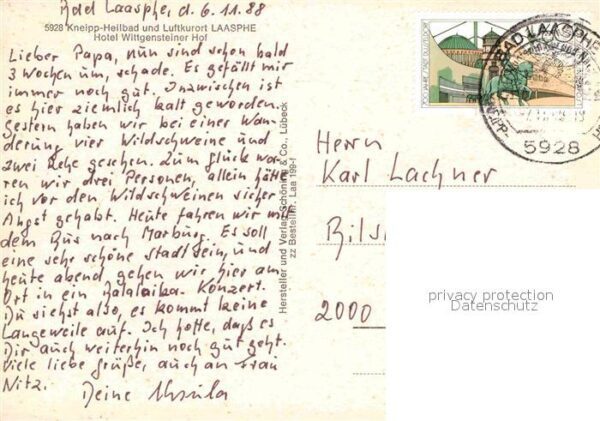 Bad Laasphe, d. 6.11.88
5928 Kneipp-Heilbad und Luftkurort LAASPHE
Hotel Wittgensteiner Hof
Lieber Papa, nun sind schon bald
3 Wochen um, schade. Es gefällt mir
immer noch gut. Inzwischen ist
es hier ziemlich kalt geworden.
Gestern haben wir bei einer Wan-
derung vier Wildschweine und
zwei Rehe gesehen. Zum Glück wa-
ren wir drei Personen, allein hätte
ich vor den Wildschweinen sicher
Angst gehabt. Heute fahren wir mit
dem Bus nach Marburg. Es soll
eine sehr schöne Stadt sein, und
heute abend gehen wir hier am
Ort in ein Balalaika-Konzert.
Du siehst also, es kommt keine
Langeweile auf. Ich hoffe, daß es
Dir auch weiterhin noch gut geht.
Viele liebe Grüße, auch an Frau
Nitz.
Deine Ursula
Hersteller und Verlag Schöning & Co., Lübeck
zz Bestellnr. Laa 199-l
700 JAHRE STADT DÜSSELDORF
BAD LAASPHE
5928
Herrn
Karl Lachner
Bils
2000
privacy protection
Datenschutz